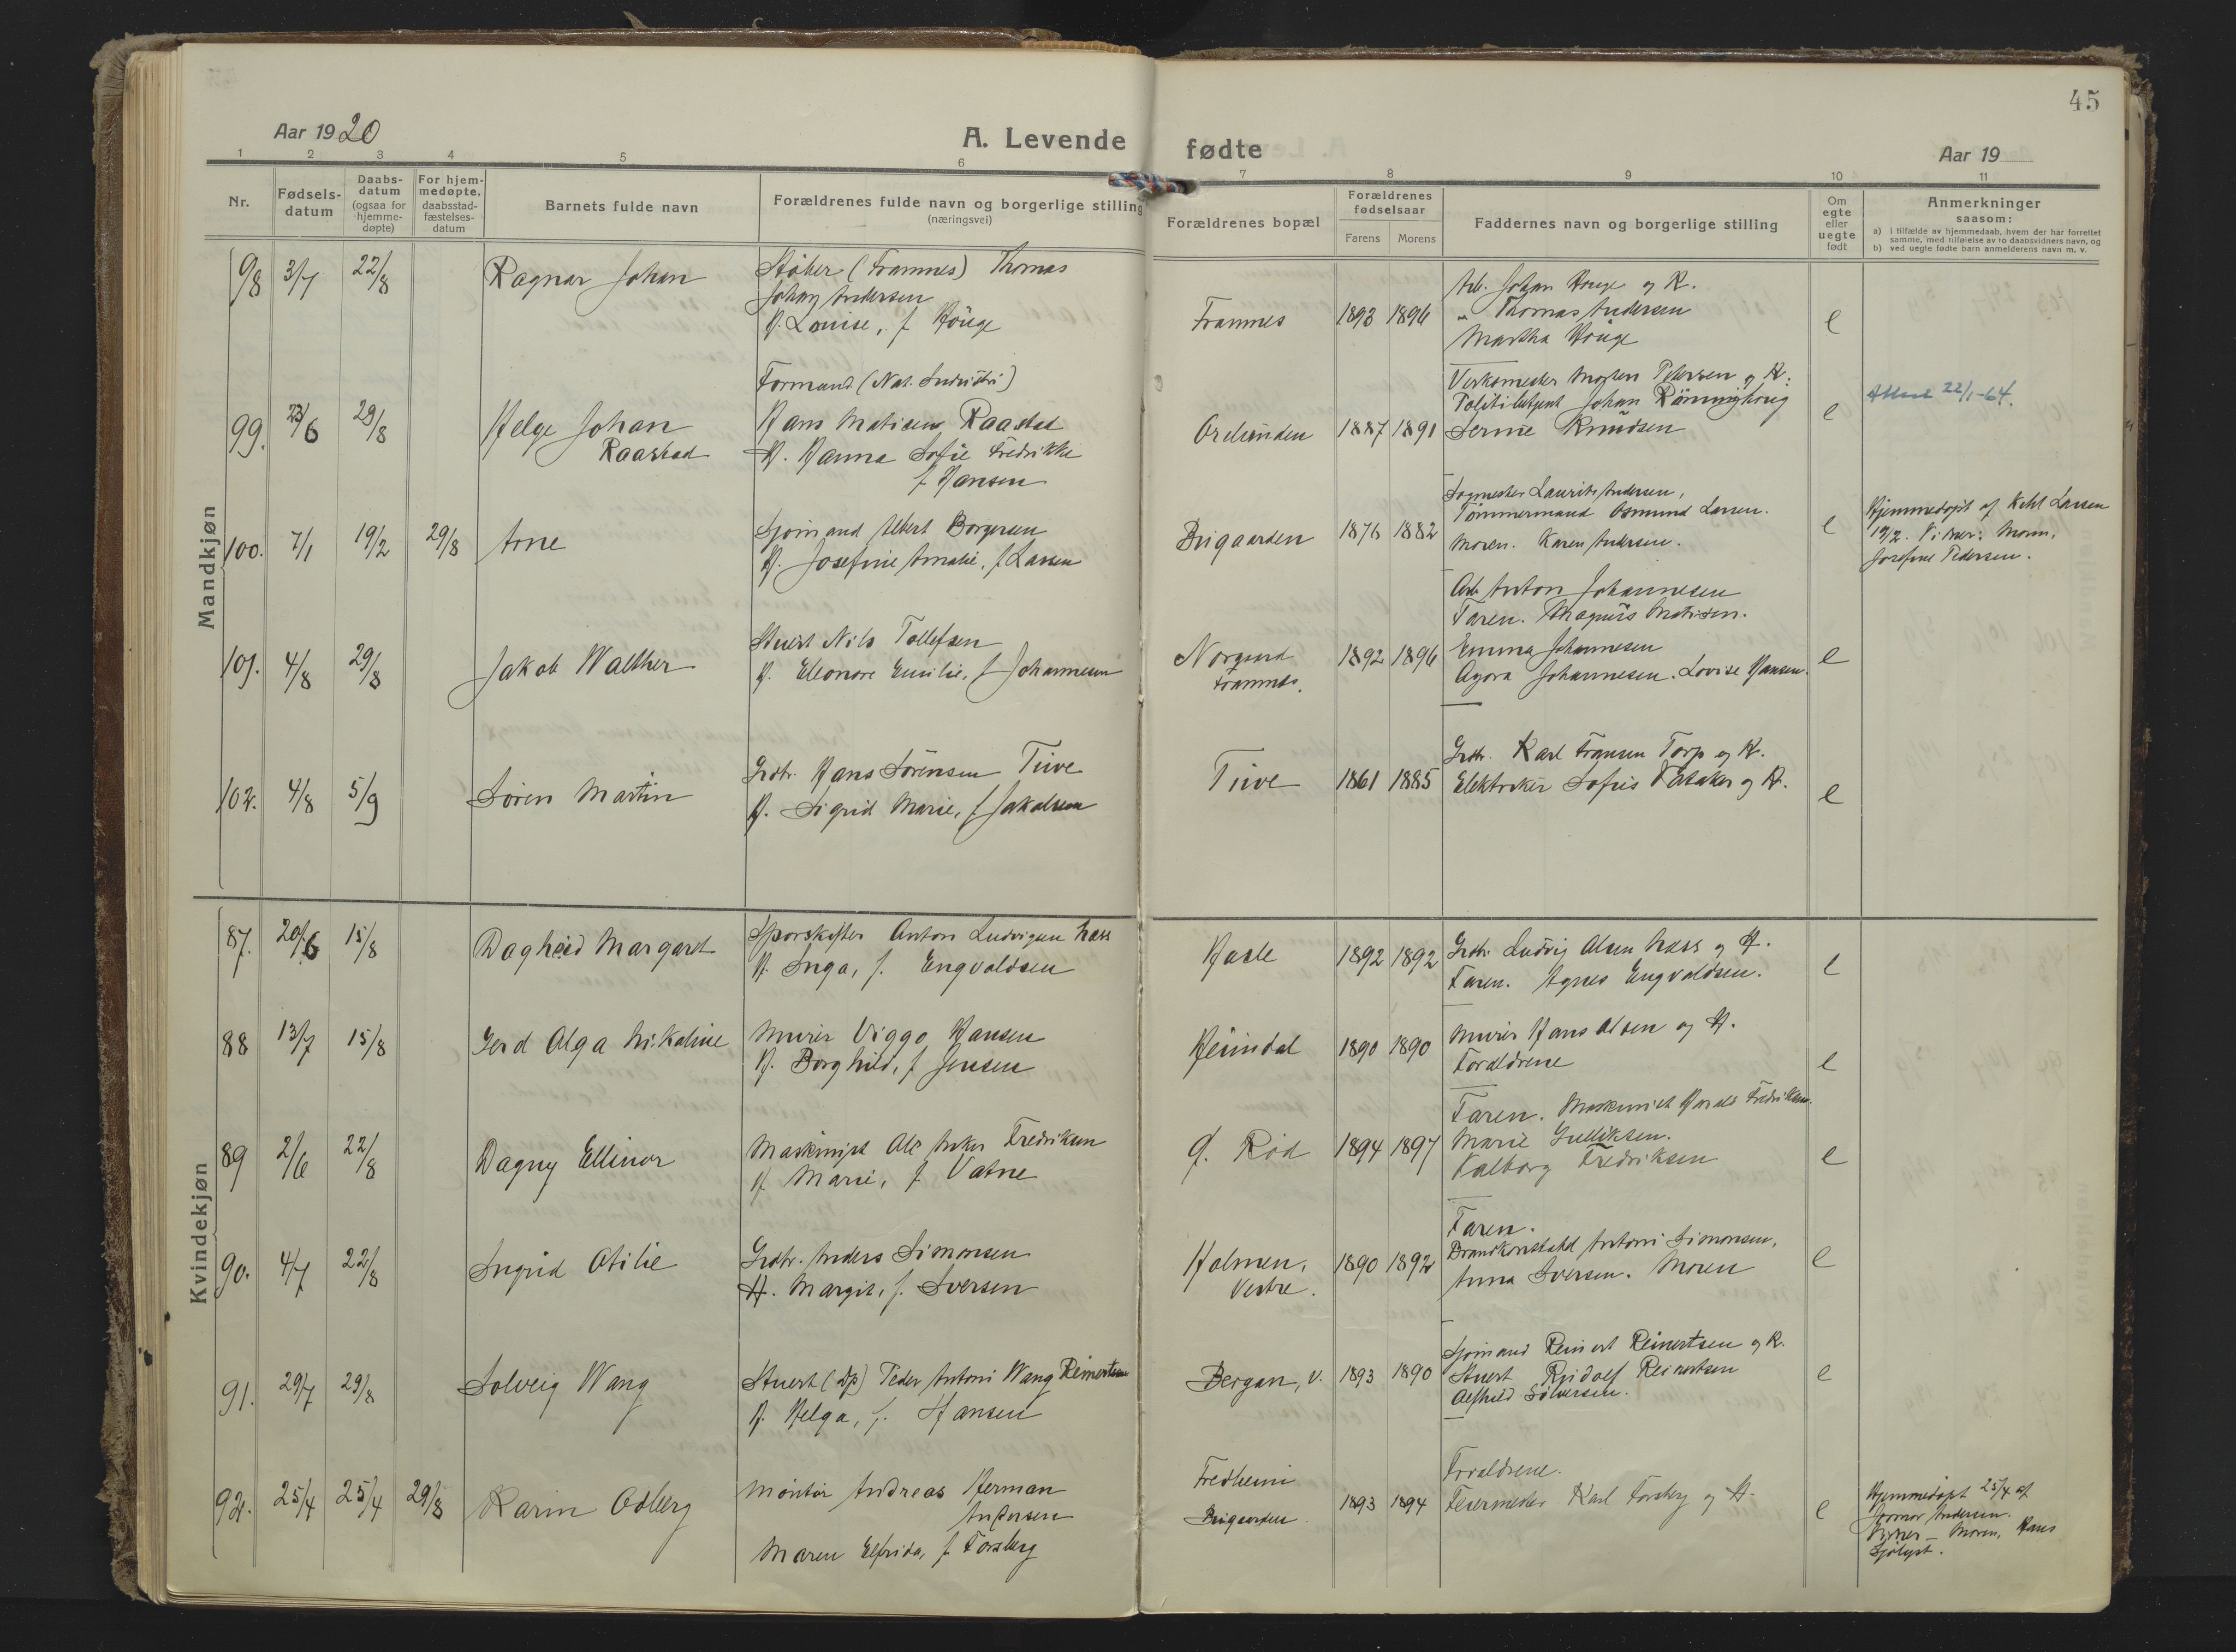 45
Aar 1920
A. Levende
fødte
Aar 19
1 2 3 4 5 6 7 8 9 10 11
Nr.
Fødsels-
datum
Daabs-
datum
(ogsaa for
hjemme-
døpte)
For hjem-
medøpte,
daabsstad-
fæstelses-
datum
Barnets fulde navn
Forældrenes fulde navn og borgerlige stilling
(næringsvei)
Forældrenes bopæl
Forældrenes
fødselsaar
Farens Morens
Faddernes navn og borgerlige stilling
Om
egte
eller
uegte
født
Anmerkninger
saasom:
a) i tilfælde av hjemmedaab, hvem der har forrettet
samme, med tilføielse av to daabsvidners navn, og
b) ved uegte fødte barn anmelderens navn m. v.
Mandkjøn
98 3/7 22/8 Ragnar Johan
Støber (Framnes) Thomas
Johan Andersen
H. Louise, f. Hauge
Framnes 1893 1896
Arb. Johan Hauge og H.
" Thomas Andersen
Martha Hauge
e
99. 23/6 29/8 Helge Johan
Raastad
Formand (Nat. Industri)
Hans Matisen Raastad
H. Hanna Sofie Fredrikke
f. Hansen
Orelunden 1887 1891
Verksmester Morten Petersen og H.
Politibetjent Johan Rønninghaug
Knudsen
e
Attest 22/1-64.
100. 7/1 19/2 29/8 Arne
Sjømand Albert Borgersen
H. Josefine Amalie, f. Larsen
Brigaarden 1876 1882
Laurits Andersen,
Tømmermand Osmund Larsen.
Moren. Karen Andersen.
e
Hjemmedøpt af Larsen
19/2. Vidner: Moren,
Josefine Pedersen.
101. 4/8 29/8 Jakob Walther
Stuert Nils Tollefsen
H. Eleonore Emilie, f. Johannesen
Norgaard
Framnes.
1892 1896
Arb. Anton Johannesen
Faren. Magnus Matisen.
Emma Johannesen
Agora Johannesen. Lovise Hansen.
e
102. 4/8 5/9 Søren Martin
Grdbr. Hans Sørensen Tuve
H. Sigrid Marie, f. Jakobsen
Tuve 1861 1885
Grdbr. Karl Fransen Torp og H.
Elektriker Sofus og H.
e
Kvindekjøn
87. 20/6 15/8 Dagheid Margaret
Sporskifter Anton Ludvigsen Næss
H. Inga, f. Engvaldsen
Hasle 1892 1892
Grdbr. Ludvig Olsen Næss og H.
Faren. Agnes Engvaldsen.
e
88 13/7 15/8 Gerd Olga Nikoline
Murer Viggo Hansen
H. Borghild, f. Jensen
Heimdal 1890 1890
Murer Hans Olsen og H.
Forældrene
e
89 2/6 22/8 Dagny Ellinor
Maskinist Ole Fredriksen
H. Marie, f. Vatne
G. Rød 1894 1897
Faren. Maskinist Harald Fredriksen.
Marie Gulliksen.
Valborg Fredriksen
e
90. 4/7 22/8 Ingrid Otilie
Grdbr. Anders Simonsen
H. Margit, f. Iversen
Holmen,
Vestre.
1890 1892
Faren.
Brandkonstabel Antoni Simonsen,
Anna Iversen. Moren
e
91. 29/7 29/8 Solveig Wang
Stuert (dp) Peder Antoni Wang Reinertsen
H. Helga, f. Hansen
Bergan, V. 1893 1890
Sjømand Reinert Reinertsen og H.
Stuert Rudolf Reinertsen
Alfhild Sølversen.
e
92. 25/4 25/4 29/8 Karin Odberg
Montør Andreas Herman
Andersen
Maren Elfrida, f. Forsberg
Fredheim
Brigaarden
1893 1894
Forældrene.
Feiermester Karl Forsberg og H.
e
Hjemmedøpt 25/4 af
Jormor Andersen.
Vidner - Moren, Hans
Sjølyst.